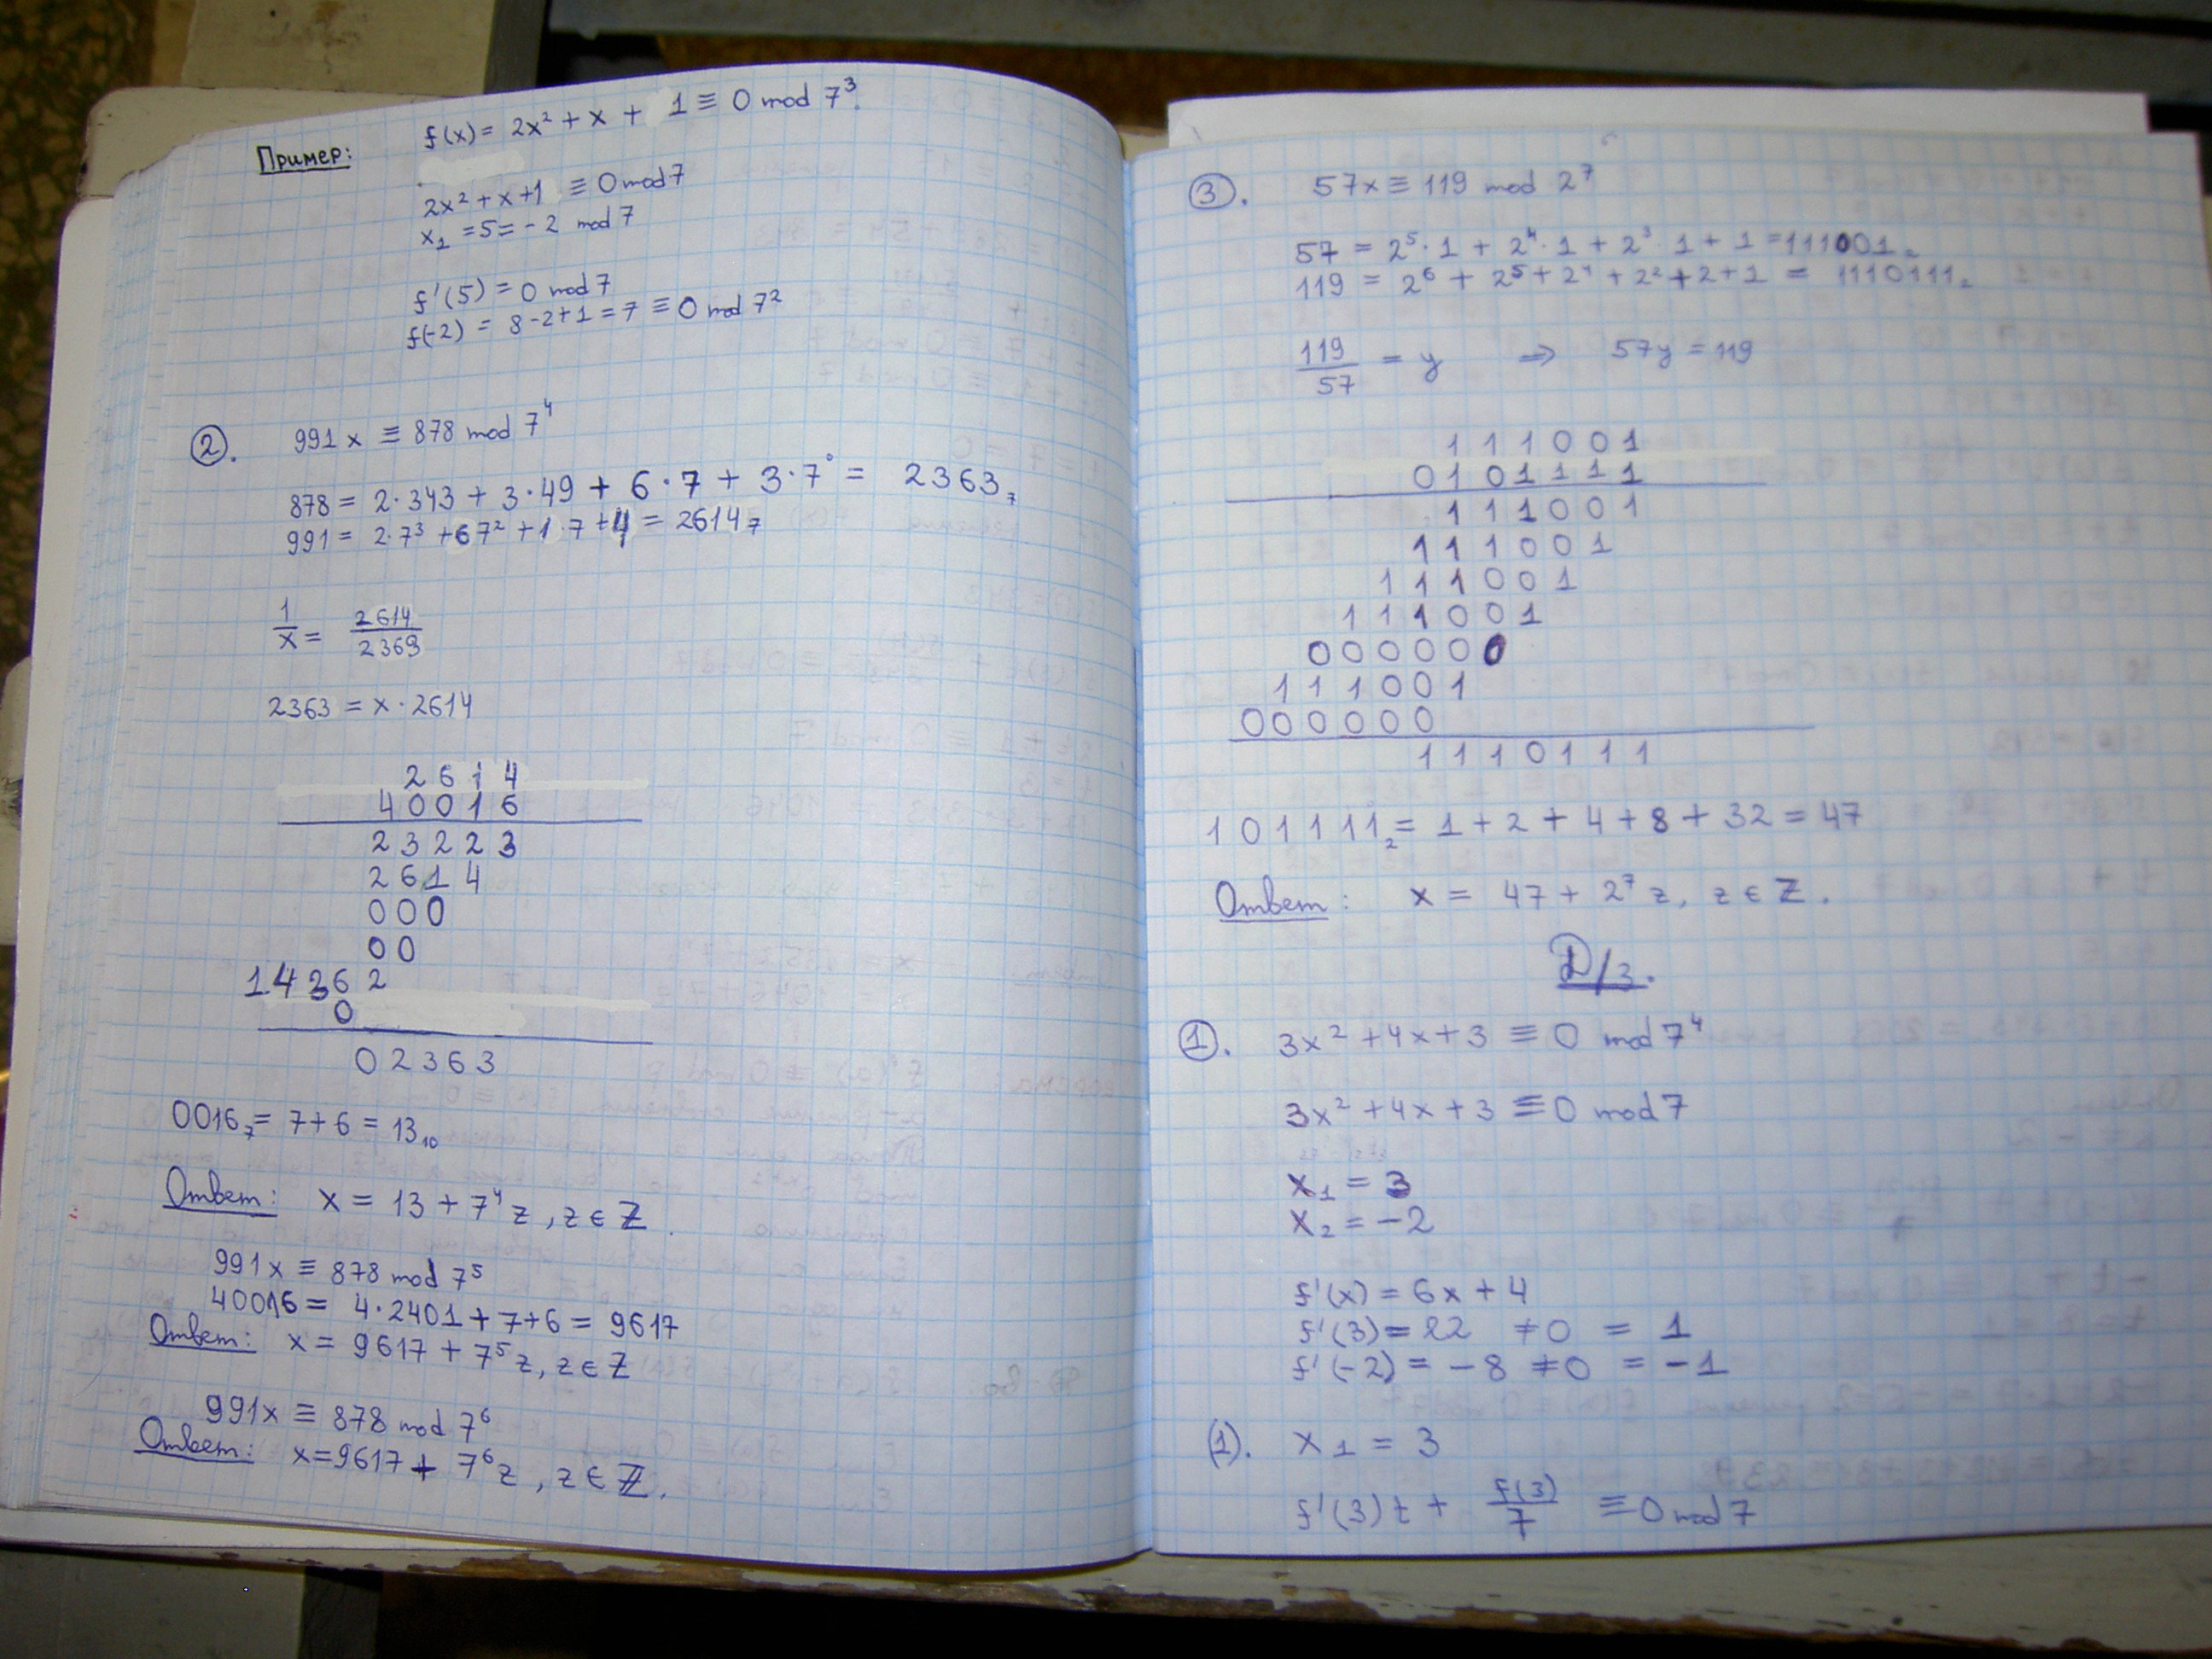 Пример: f(x) = 2x² + x + 1 ≡ 0 mod 7³.
2x² + x + 1 ≡ 0 mod 7
x₁ = 5 = -2 mod 7
f'(5) = 0 mod 7
f(-2) = 8 - 2 + 1 = 7 ≡ 0 mod 7²
②. 991x ≡ 878 mod 7⁴
878 = 2·343 + 3·49 + 6·7 + 3·7° = 2363₇
991 = 2·7³ + 6 7² + 1·7 + 4 = 2614₇
1/x = 2614/2363
2363 = x·2614
2 6 1 4
4 0 0 1 6
2 3 2 2 3
2 6 1 4
0 0 0
0 0
1 4 3 6 2
0
0 2 3 6 3
0016₇ = 7 + 6 = 13₁₀
Ответ: x = 13 + 7⁴z, z ∈ Z.
991x ≡ 878 mod 7⁵
40016 = 4·2401 + 7 + 6 = 9617
Ответ: x = 9617 + 7⁵z, z ∈ Z
991x ≡ 878 mod 7⁶
Ответ: x = 9617 + 7⁶z, z ∈ Z.
③. 57x ≡ 119 mod 2⁷
57 = 2⁵·1 + 2⁴·1 + 2³·1 + 1 = 111001₂
119 = 2⁶ + 2⁵ + 2⁴ + 2² + 2 + 1 = 1110111₂
119/57 = y ⇒ 57y = 119
1 1 1 0 0 1
0 1 0 1 1 1 1
1 1 1 0 0 1
1 1 1 0 0 1
1 1 1 0 0 1
1 1 1 0 0 1
0 0 0 0 0 0
1 1 1 0 0 1
0 0 0 0 0 0
1 1 1 0 1 1 1
1 0 1 1 1 1₂ = 1 + 2 + 4 + 8 + 32 = 47
Ответ: x = 47 + 2⁷z, z ∈ Z.
Д/з.
①. 3x² + 4x + 3 ≡ 0 mod 7⁴
3x² + 4x + 3 ≡ 0 mod 7
x₁ = 3
x₂ = -2
f'(x) = 6x + 4
f'(3) = 22 ≠ 0 = 1
f'(-2) = -8 ≠ 0 = -1
(1). x₁ = 3
f'(3)t + f(3)/7 ≡ 0 mod 7